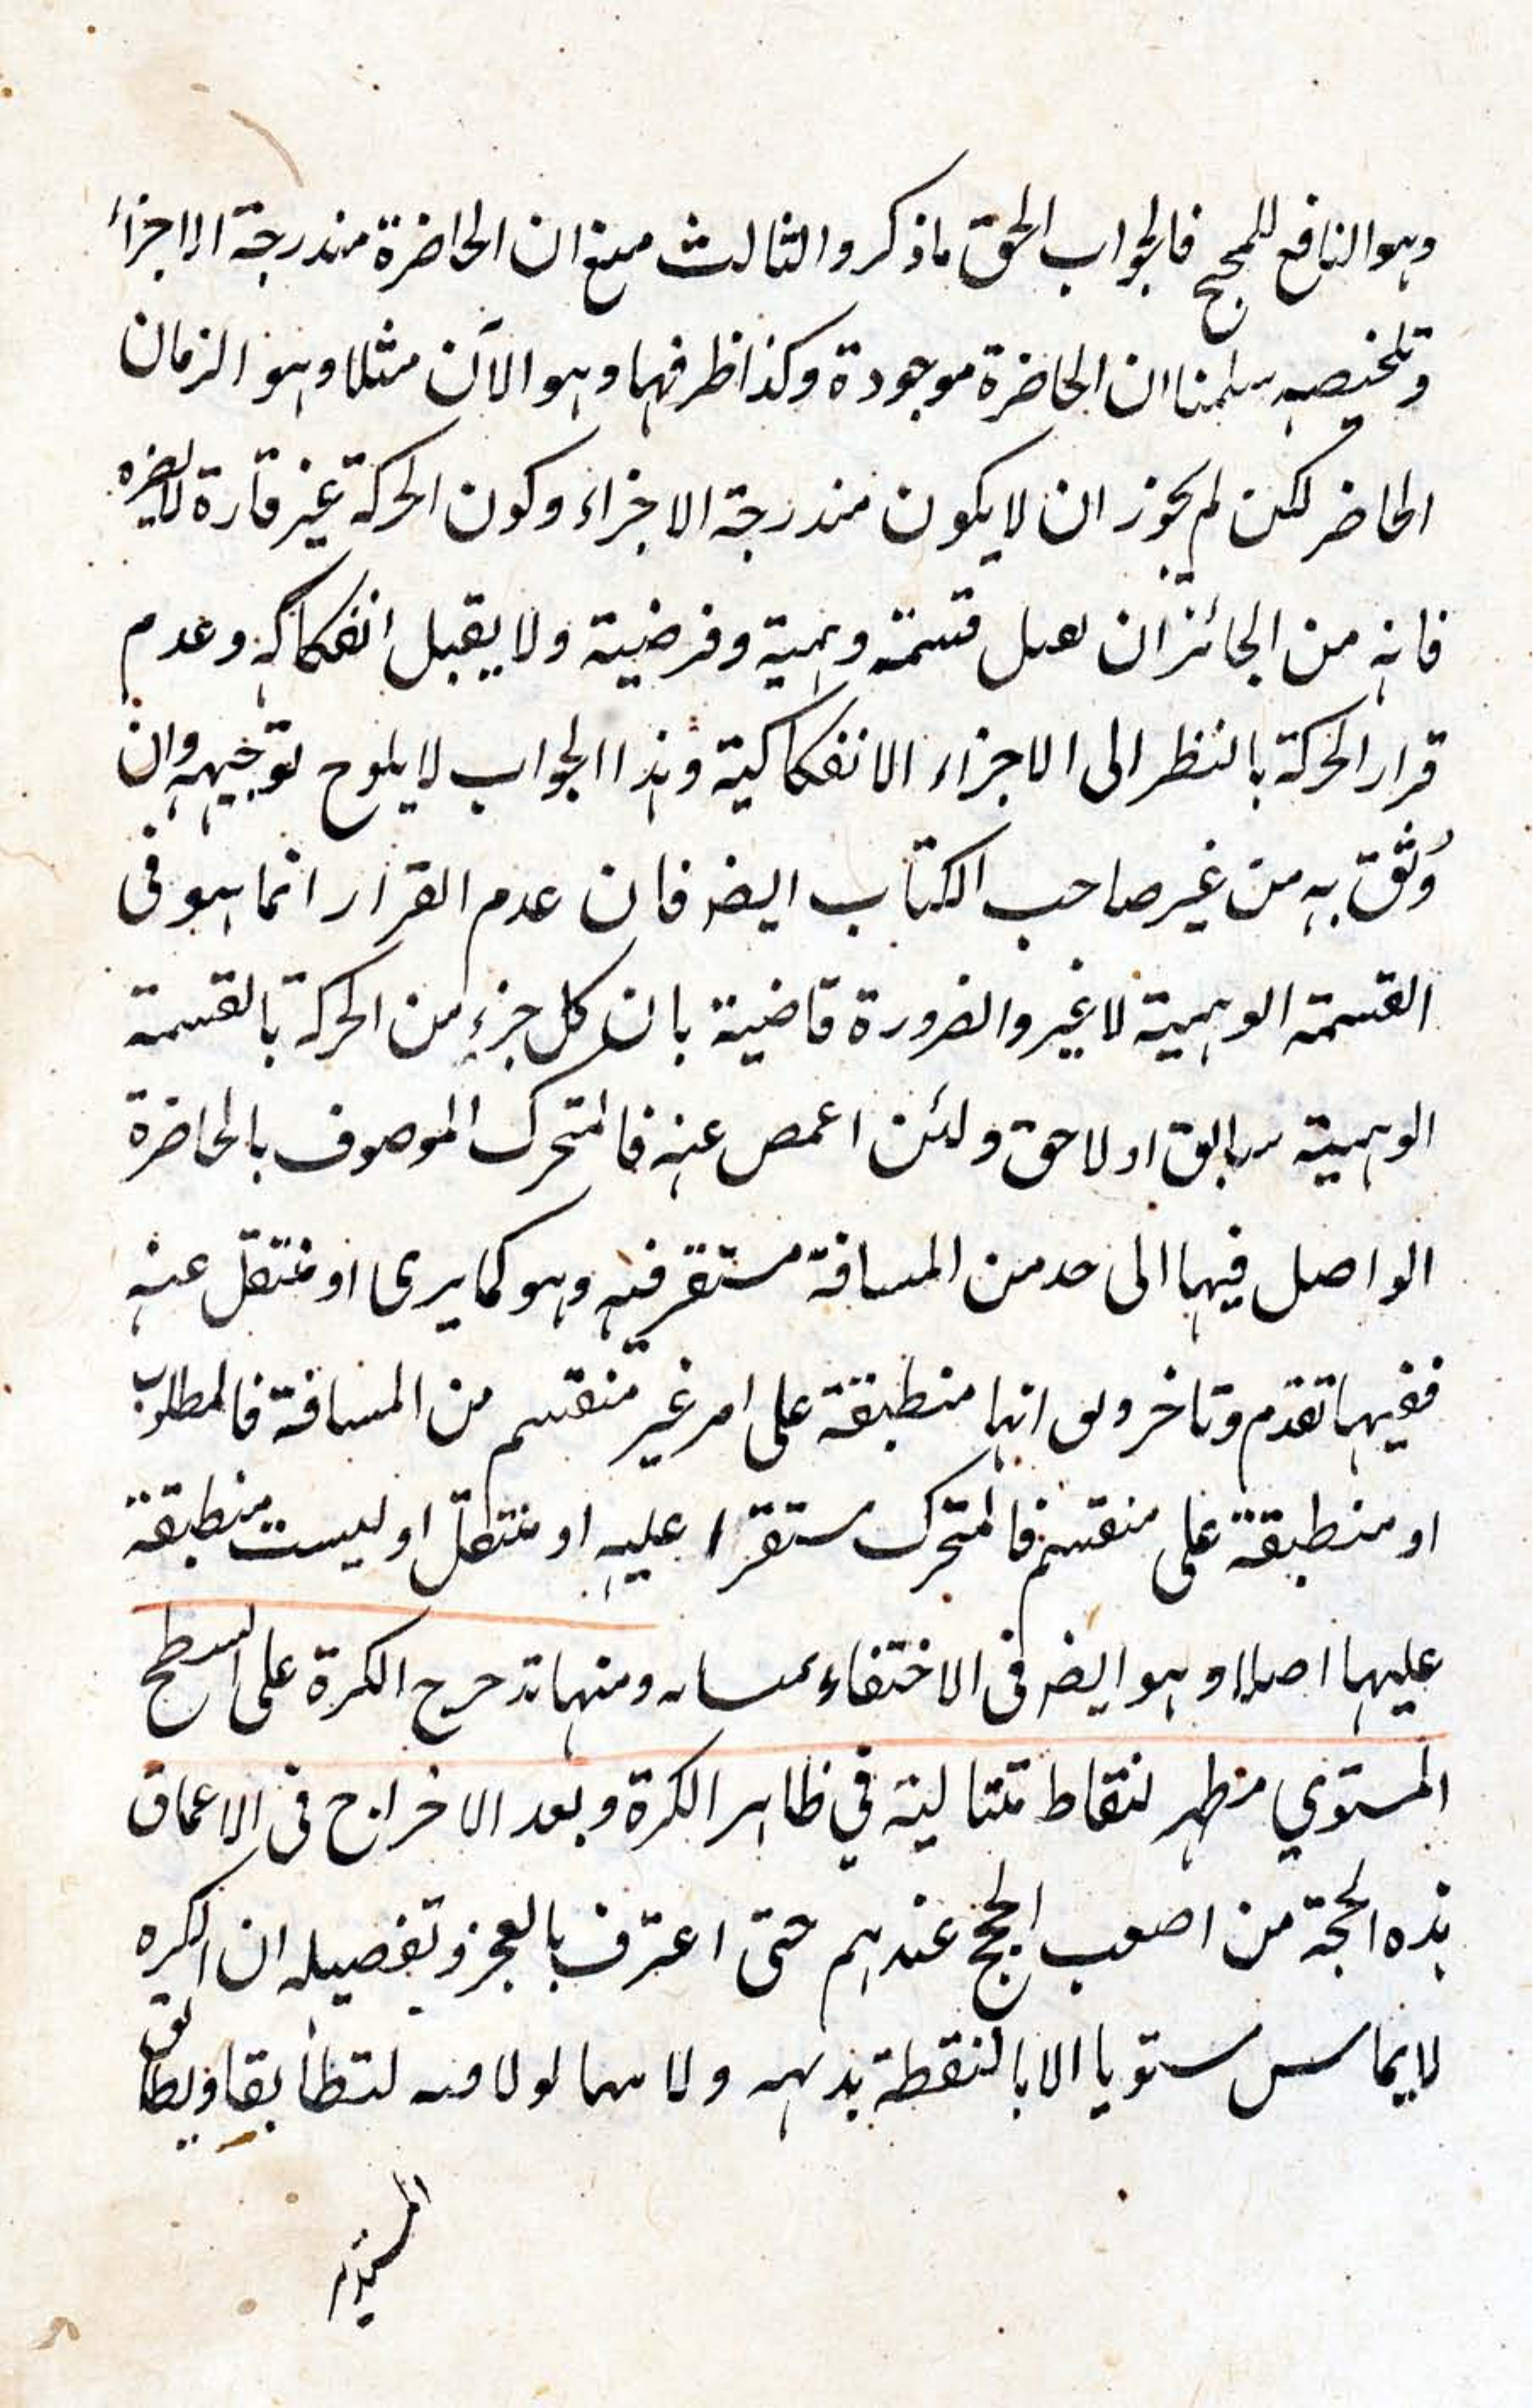 وهو النافع للمحجج فالجواب الحق ما ذكر والثالث منع ان الحاضرة مندرجة الاجزاء
وتلخيصه سلمنا ان الحاضرة موجودة وكذا ظرفها وهو الآن مثلا وهو الزمان
الحاضر لكن لم يجوز ان لا يكون مندرجة الاجزاء وكون الحركة غير قارة لا يضره
فانه من الجائز ان يقبل قسمة وهمية وفرضية ولا يقبل انفكاكه وعدم
قرار الحركة بالنظر الى الاجزاء الانفكاكية وهذا الجواب لا يلوح توجيهه وان
وُثق به من غير صاحب الكتاب ايضه فان عدم القرار انما هو فى
القسمة الوهمية لا غير والضرورة قاضية بان كل جزءٍ من الحركة بالقسمة
الوهمية سابق او لاحق ولئن اغمص عنه فالمتحرك الموصوف بالحاضرة
الواصل فيها الى حد من المسافة مستقر فيه وهو كما يرى او منتقل عنه
ففيها تقدم وتاخر وبق انها منطبقة على امر غير منقسم من المسافة فالمطلوب
او منطبقة على منقسم فالمتحرك مستقر ا عليه او منتقل او ليست منطبقة
عليها اصلا وهو ايضه فى الاختفاء ومنها تدحرج الكرة على السطح
المستوي مظهر لنقاط متتالية في ظاهر الكرة وبعد الاخراج فى الاعماق
هذه الحجة من اصعب الحجج عندهم حتى اعترف بالعجز وتفصيله ان الكره
لا يماس مستويا الا بالنقطة بديهه ولانهما لو لاقته لتطابقا ويطابق
المستدير